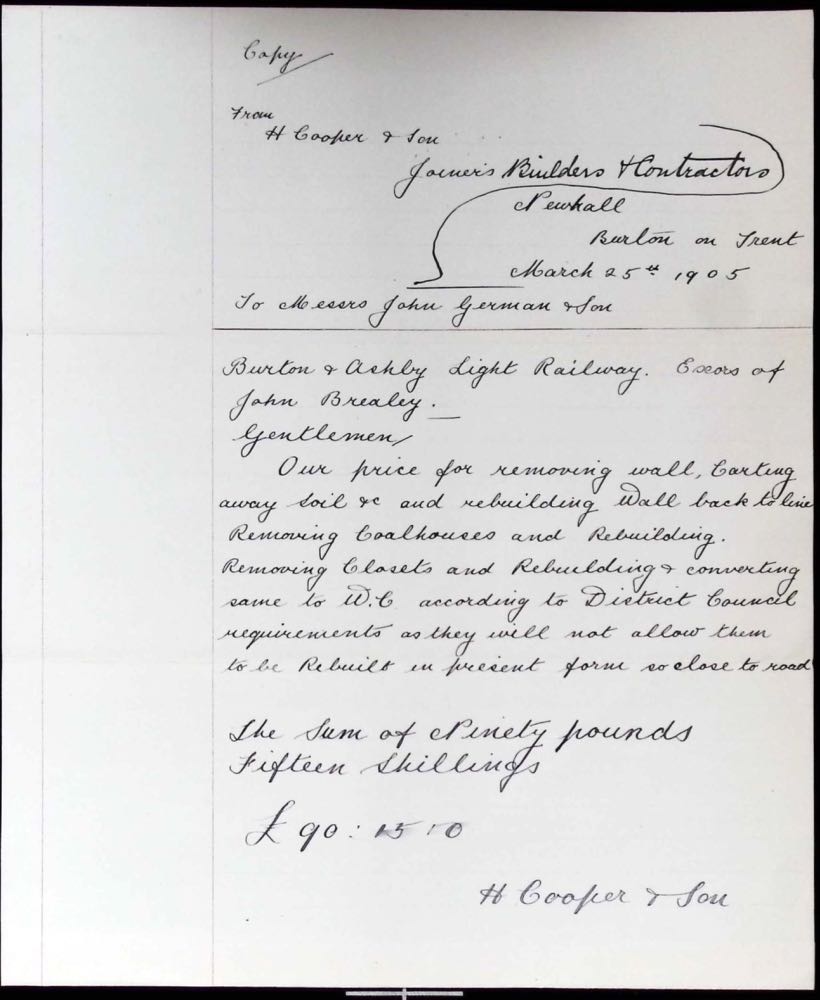 Copy
From
H Cooper & Son
Joiners Builders & Contractors
Newhall
Burton on Trent
March 25th 1905
To Messrs John German & Son
Burton & Ashby Light Railway. Exors of
John Brealey.
Gentlemen/
Our price for removing wall, Carting
away soil &c and rebuilding Wall back to line
Removing Coalhouses and Rebuilding.
Removing Closets and Rebuilding & converting
same to W.C according to District Council
requirements as they will not allow them
to be Rebuilt in present form so close to road
The Sum of Ninety pounds
Fifteen Shillings
£ 90 : 15 : 0
H Cooper & Son